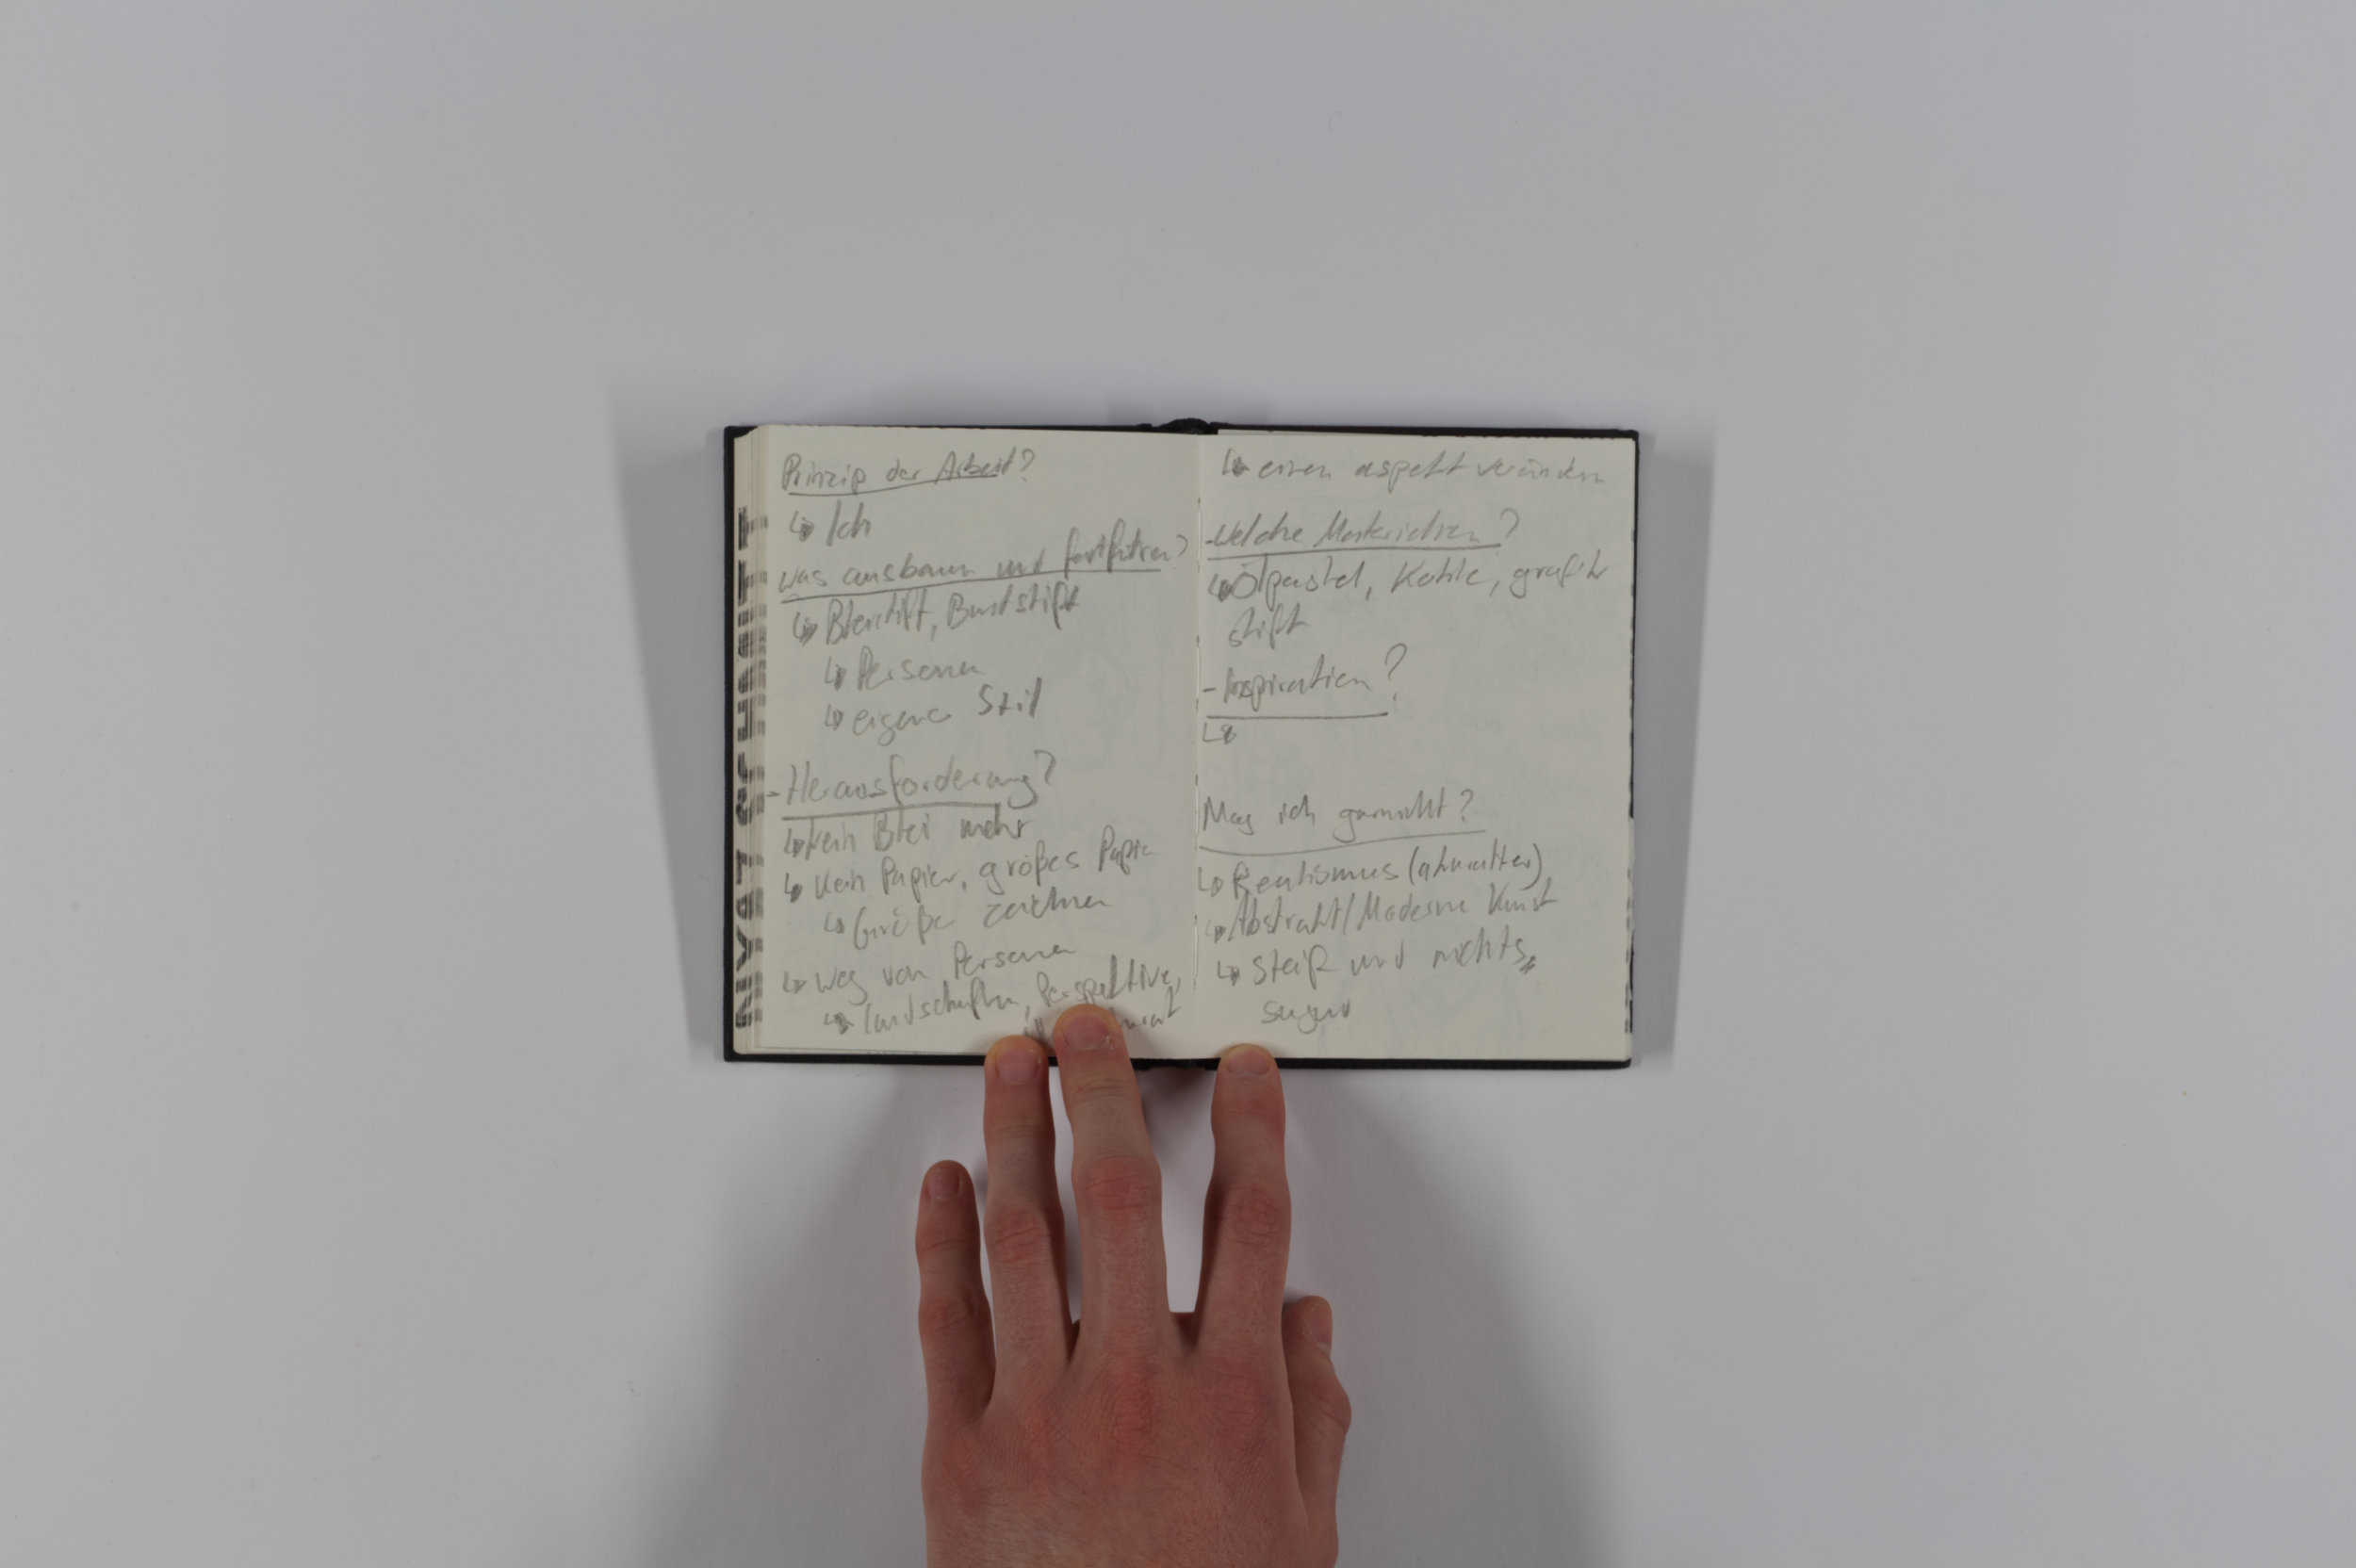 Prinzip der Arbeit?
↳ Ich
Was ausbaun und fortführen?
↳ Bleistift, Buntstift
↳ Personen
↳ eigener Stil
- Herausforderung?
↳ Kein Blei mehr
↳ Kein Papier, großes Papier
↳ Größer zeichnen
↳ Weg von Personen
↳ Landschaften, Perspektive,
↳ einen aspekt verändern
- Welche Materialien?
↳ Ölpastel, Kohle, grafit
stift
- Inspiration?
↳
Mag ich garnicht?
↳ Realismus
↳ Abstrakt/Moderne Kunst
↳ Steif und nichts
sagend